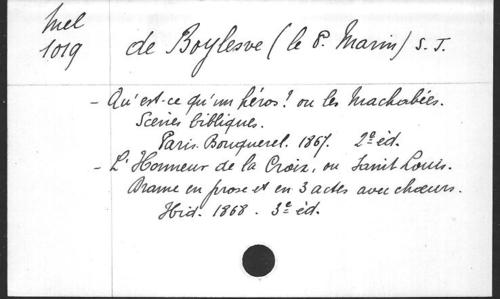 Mel
1019
de Boylesve (le P. Marin) S. J.
- Qu'est-ce qu'un héros? ou les Machabées.
Scènes bibliques.
Paris. Bouquerel. 1867. 2e éd.
- L'Honneur de la Croix, ou Saint Louis.
Drame en prose et en 3 actes avec chœurs.
Ibid. 1868. 3e éd.